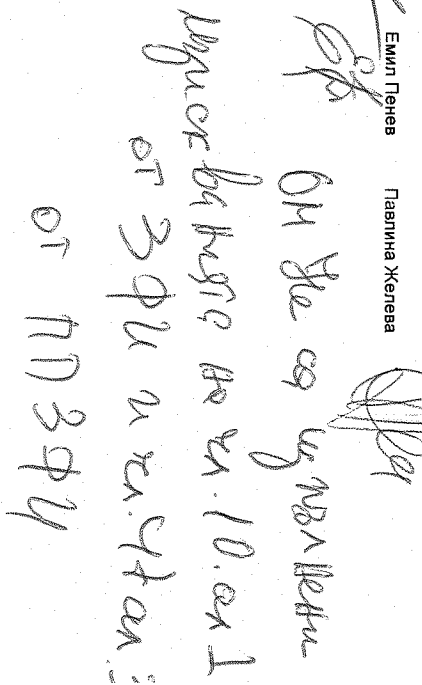 Емил Пенев Павлина Желева
ОМ Не са изпълнени
изискванията на чл. 10. ал 1
от ЗФИ и чл. 47 ал
от ППЗФИ